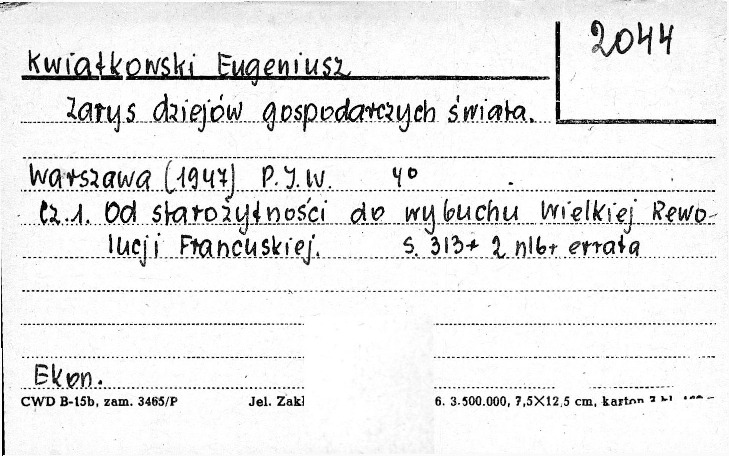 2044
Kwiatkowski Eugeniusz
Zarys dziejów gospodarczych świata.
Warszawa (1947) P.I.W. 4°
Cz.1. Od starożytności do wybuchu Wielkiej Rewo-
lucji Francuskiej. S. 313+ 2 nlb+ errata
Ekon.
CWD B-15b, zam. 3465/P Jel. Zakł 6. 3.500.000, 7,5×12,5 cm, karton